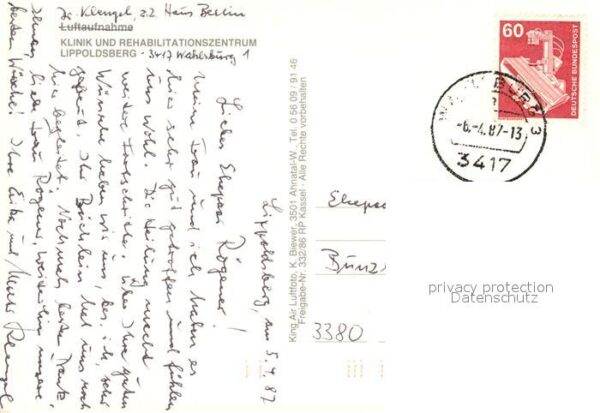 Kk. Klengel, z.Z. Haus Berlin
Luftaufnahme
KLINIK UND REHABILITATIONSZENTRUM
LIPPOLDSBERG - 3417 Wahlsburg 1
Lippoldsberg, am 5.4.87
Liebes Ehepaar Rögener!
Meine Frau und ich haben es
hier sehr gut getroffen und fühlen
uns wohl. Die Heilung macht
weitere Fortschritte. Über Ihre guten
Wünsche haben wir uns, bes. ich, sehr
gefreut. Ihr Büchlein hat uns noch
hier begleitet. Nochmals besten Dank,
Ihnen, liebe Frau Rögener, weiterhin unsere
besten Wünsche! Ihre Erika und
Klengel
King Air Luftfoto, K. Biewer, 3501 Ahnatal-W., Tel. 0 56 09 / 91 46
Freigabe-Nr. 332/86 RP Kassel - Alle Rechte vorbehalten
60
DEUTSCHE BUNDESPOST
-6.-4.87-13
3417
Ehepaa
Bünz
3380
privacy protection
Datenschutz